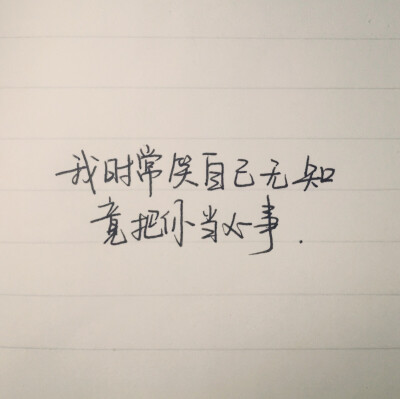 我时常笑自己无知
竟把你当心事.